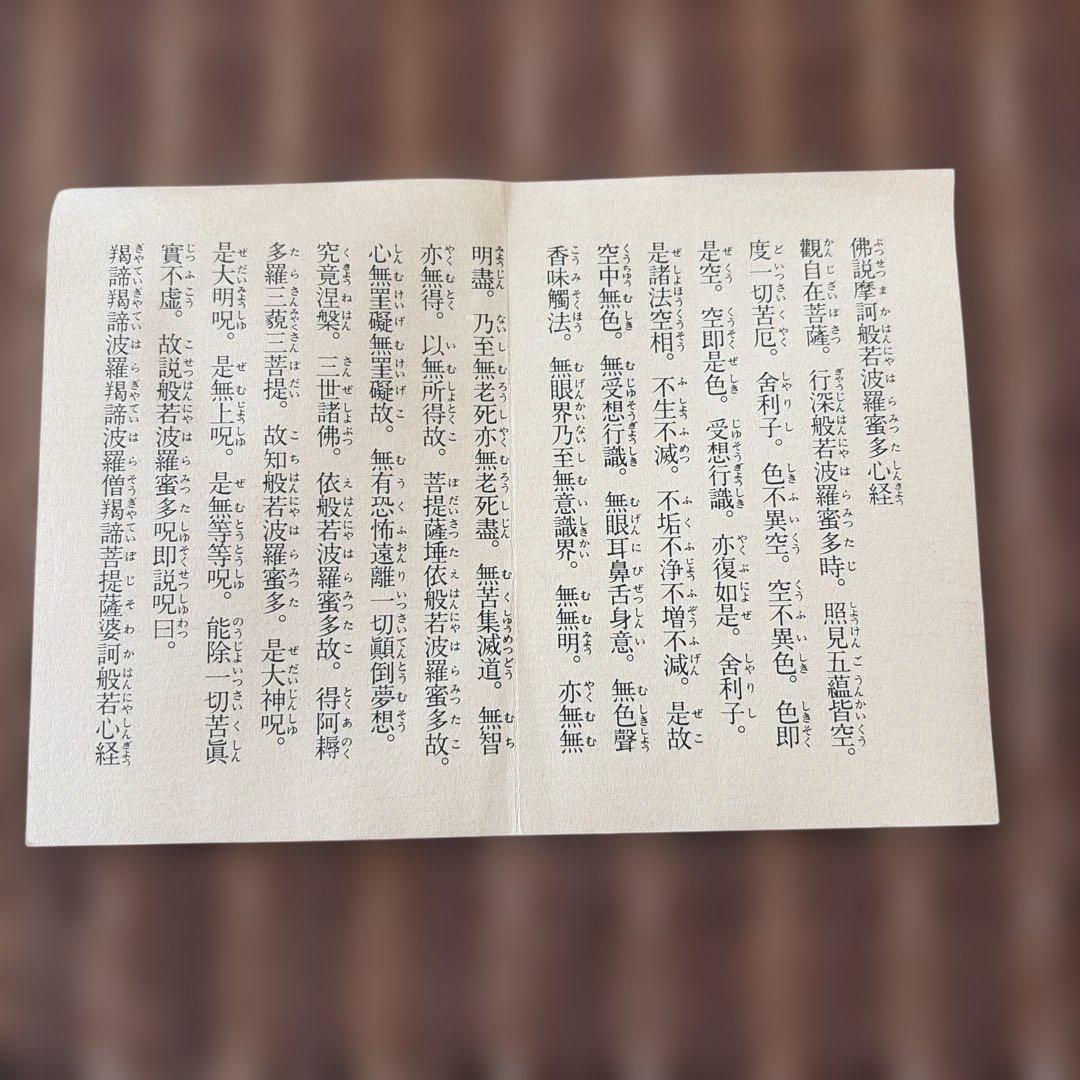 佛説摩訶般若波羅蜜多心経
觀自在菩薩。行深般若波羅蜜多時。照見五蘊皆空。
度一切苦厄。舍利子。色不異空。空不異色。色即
是空。空即是色。受想行識。亦復如是。舍利子。
是諸法空相。不生不滅。不垢不浄不増不減。是故
空中無色。無受想行識。無眼耳鼻舌身意。無色聲
香味觸法。無眼界乃至無意識界。無無明。亦無無
明盡。乃至無老死亦無老死盡。無苦集滅道。無智
亦無得。以無所得故。菩提薩埵依般若波羅蜜多故。
心無罣礙無罣礙故。無有恐怖遠離一切顚倒夢想。
究竟涅槃。三世諸佛。依般若波羅蜜多故。得阿耨
多羅三藐三菩提。故知般若波羅蜜多。是大神呪。
是大明呪。是無上呪。是無等等呪。能除一切苦眞
實不虚。故説般若波羅蜜多呪即説呪曰。
羯諦羯諦波羅羯諦波羅僧羯諦菩提薩婆訶般若心経